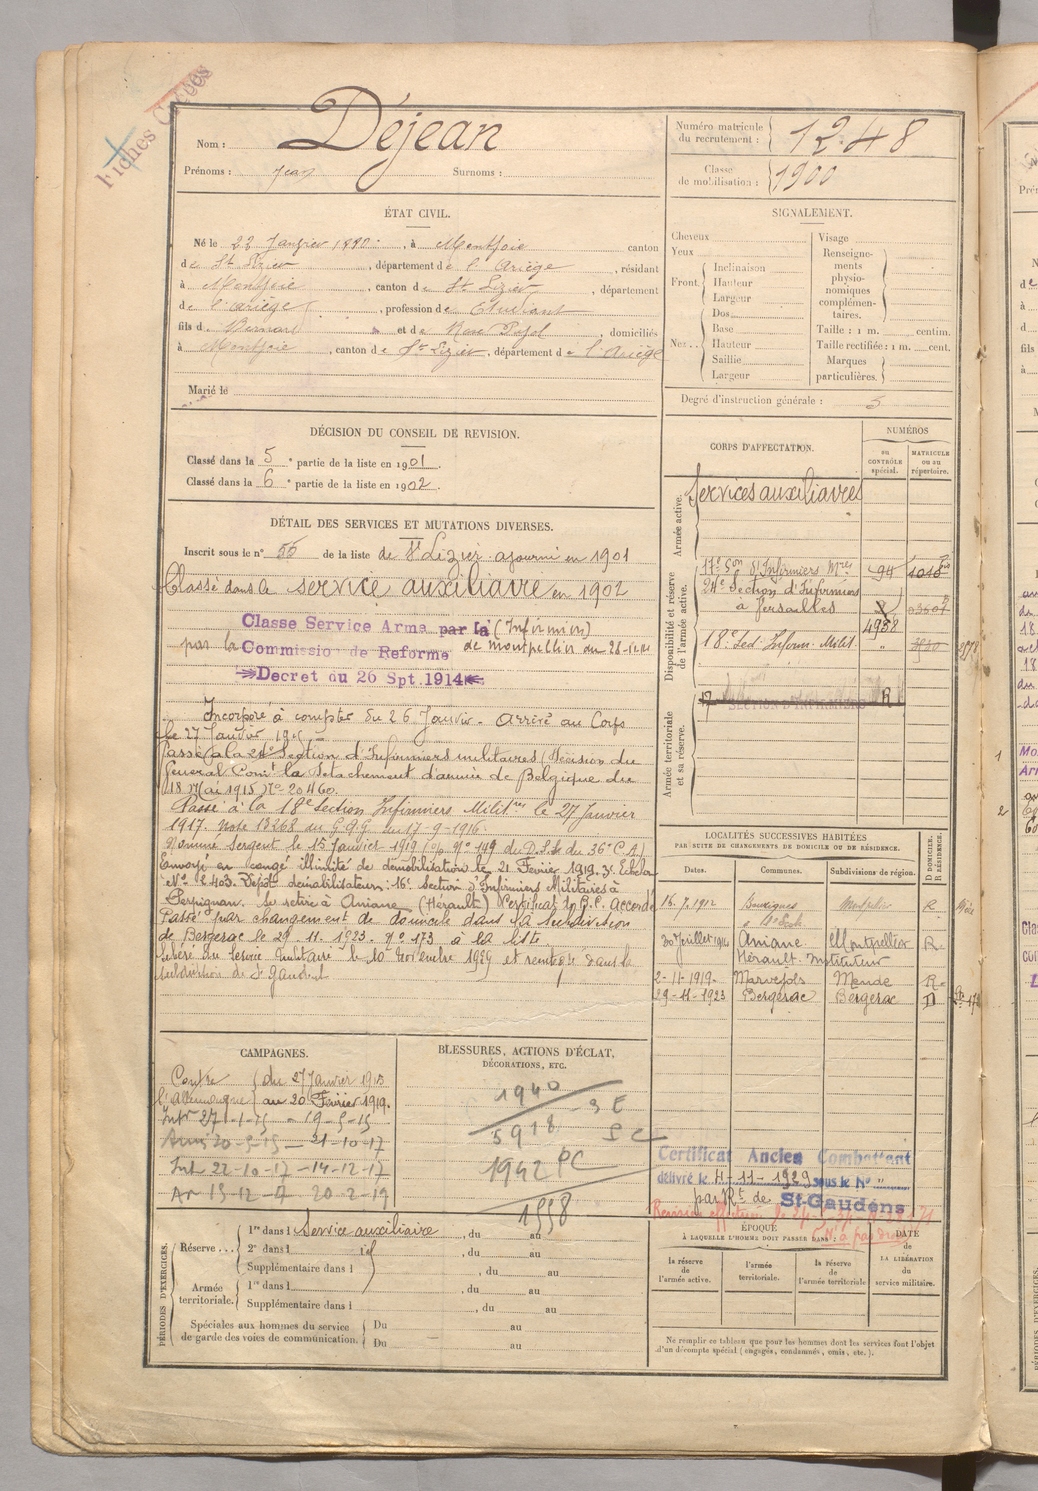 Fiches Créées
Nom : Déjean
Prénoms : Jean Surnoms :
Numéro matricule du recrutement : 1248
Classe de mobilisation : 1900
ÉTAT CIVIL.
Né le 22 Janvier 1880, à Montjoie canton
de St Lizier, département de l'Ariège, résidant
à Montjoie, canton de St Lizier, département
de l'Ariège, profession de Etudiant
fils de Bernard et de Rose Pujol, domiciliés
à Montjoie, canton de St Lizier, département de l'Ariège
Marié le
SIGNALEMENT.
Cheveux
Yeux
Front. Inclinaison
Hauteur
Largeur
Nez.. Dos
Base
Hauteur
Saillie
Largeur
Visage
Renseignements physionomiques complémentaires.
Taille : 1 m. centim.
Taille rectifiée : 1 m. cent.
Marques particulières.
Degré d'instruction générale : 5
DÉCISION DU CONSEIL DE REVISION.
Classé dans la 5e partie de la liste en 1901.
Classé dans la 6e partie de la liste en 1902.
DÉTAIL DES SERVICES ET MUTATIONS DIVERSES.
Inscrit sous le n° 55 de la liste de St Lizier ajourné en 1901
Classé dans le service auxiliaire en 1902
Classe Service Arme par la (Infirmier)
par la Commissio de Reforme de Montpellier du
Decret du 26 Spt. 1914
Incorporé à compter du 26 Janvier - Arrivé au Corps
le 27 Janvier 1915
Passé à la 24e Section d'Infirmiers militaires (Décision du
Général Comt le Détachement d'armée de Belgique du
18 Mai 1915) No 20460.
Passé à la 18e Section Infirmiers Militres le 27 Janvier
1917. Note 13268 du G.Q.G du 17-9-1916.
Nommé Sergent le 15 Janvier 1919 (o/o no 149 du D.S.S du 36e C.A.)
Envoyé en congé illimité de démobilisation le 21 Février 1919. 3e Echelon
No 2403. Dépôt démobilisateur : 16e Section d'Infirmiers Militaires à
Perpignan. Se retire à Aniane (Hérault) Certificat de B.C. Accordé
Passé par changement de domicile dans la subdivision
de Bergerac le 29.11.1923. No 173 à la liste
Libéré du service militaire le 10 novembre 1929 et rentré dans la
subdivision de St Gaudens
CORPS D'AFFECTATION.
NUMÉROS
au CONTRÔLE spécial.
MATRICULE ou au répertoire.
Armée active.
Services auxiliaires
Disponibilité et réserve de l'armée active.
17e Son d'Infirmiers Mres 94 1010 bis
24e Section d'Infirmiers
à Versailles
4958
18e Sect. Infirm. Milit
Armée territoriale et sa réserve.
17 SECTION D'INFIRMIERS R
LOCALITÉS SUCCESSIVES HABITÉES
PAR SUITE DE CHANGEMENTS DE DOMICILE OU DE RÉSIDENCE.
Dates. Communes. Subdivisions de région. D DOMICILE. R RÉSIDENCE.
16.7.1912 Bouzigues Montpellier R
30 Juillet 1914 Aniane Montpellier R
Hérault. Instituteur
2-11-1919. Marvejols Mende R
29-11-1923 Bergerac Bergerac D
CAMPAGNES.
Contre l'Allemagne du 27 Janvier 1915
au 20 Février 1919.
Intr 27-1-15 - 19-5-15
Arm 20-5-15 — 21-10-17
Int 22-10-17 - 14-12-17
Ar 15-12-17 20-2-19
BLESSURES, ACTIONS D'ÉCLAT,
DÉCORATIONS, ETC.
1940
5918 - SE
SC
1942 PC
1558
Certificat Ancien Combattant
délivré le 4-11-1929 sous le No "
par Rt de St-Gaudens
PÉRIODES D'EXERCICES.
Réserve... 1re dans l Service auxiliaire, du au
2e dans l id, du au
Supplémentaire dans l, du au
Armée territoriale. 1re dans l, du au
Supplémentaire dans l, du au
Spéciales aux hommes du service de garde des voies de communication. Du au
Du au
ÉPOQUE
À LAQUELLE L'HOMME DOIT PASSER DANS :
la réserve de l'armée active.
l'armée territoriale.
la réserve de l'armée territoriale
DATE de LA LIBÉRATION du service militaire.
Ne remplir ce tableau que pour les hommes dont les services font l'objet
d'un décompte spécial (engagés, condamnés, omis, etc.).